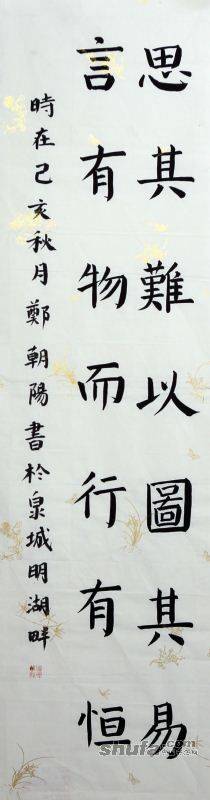 思其難以圖其易
言有物而行有恒
時在己亥秋月鄭朝陽書於泉城明湖畔